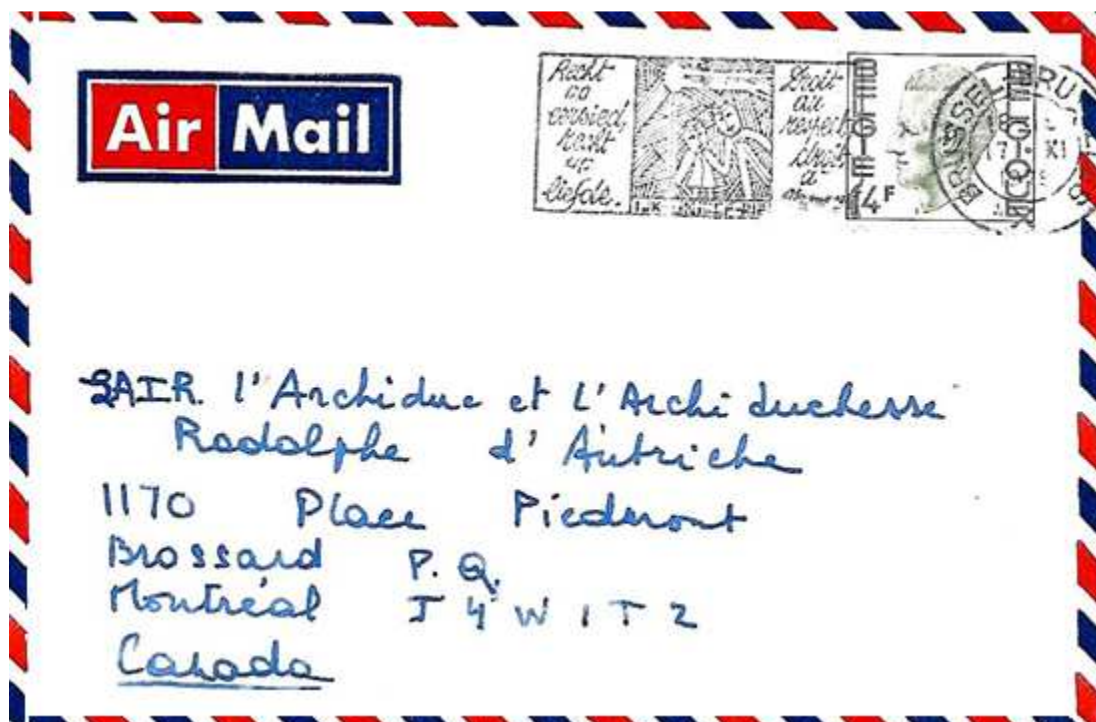 Air Mail
Recht
op
eerbied,
recht
op
liefde.
Droit
au
respect
droit
à
BELGIE
BELGIQUE
14F
SAIR. l'Archiduc et L'Archiduchesse
Rodolphe d'Autriche
1170 Place Piedmont
Brossard P.Q.
Montréal J4W 1T2
Canada